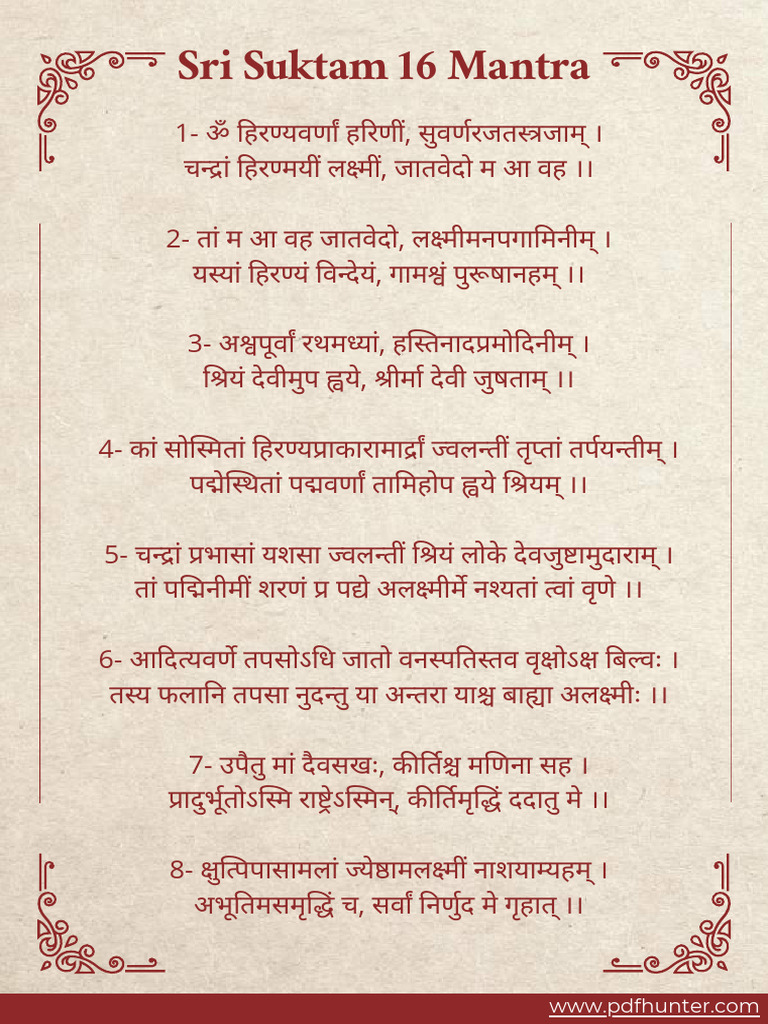 Sri Suktam 16 Mantra
1- ॐ हिरण्यवर्णां हरिणीं, सुवर्णरजतस्त्रजाम् ।
चन्द्रां हिरण्मयीं लक्ष्मीं, जातवेदो म आ वह ।।
2- तां म आ वह जातवेदो, लक्ष्मीमनपगामिनीम् ।
यस्यां हिरण्यं विन्देयं, गामश्वं पुरूषानहम् ।।
3- अश्वपूर्वां रथमध्यां, हस्तिनादप्रमोदिनीम् ।
श्रियं देवीमुप ह्वये, श्रीर्मा देवी जुषताम् ।।
4- कां सोस्मितां हिरण्यप्राकारामार्द्रां ज्वलन्तीं तृप्तां तर्पयन्तीम् ।
पद्मेस्थितां पद्मवर्णां तामिहोप ह्वये श्रियम् ।।
5- चन्द्रां प्रभासां यशसा ज्वलन्तीं श्रियं लोके देवजुष्टामुदाराम् ।
तां पद्मिनीमीं शरणं प्र पद्ये अलक्ष्मीर्मे नश्यतां त्वां वृणे ।।
6- आदित्यवर्णे तपसोऽधि जातो वनस्पतिस्तव वृक्षोऽक्ष बिल्वः ।
तस्य फलानि तपसा नुदन्तु या अन्तरा याश्च बाह्या अलक्ष्मीः ।।
7- उपैतु मां दैवसखः, कीर्तिश्च मणिना सह ।
प्रादुर्भूतोऽस्मि राष्ट्रेऽस्मिन्, कीर्तिमृद्धिं ददातु मे ।।
8- क्षुत्पिपासामलां ज्येष्ठामलक्ष्मीं नाशयाम्यहम् ।
अभूतिमसमृद्धिं च, सर्वां निर्णुद मे गृहात् ।।
www.pdfhunter.com